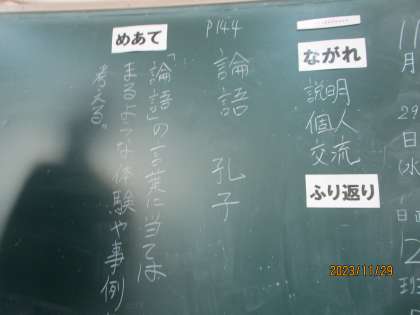 11
月
29
日
(水
日直
12
班
ながれ
説明
個人
交流
ふり返り
P144
論語 孔子
めあて
「論語」の言葉に当ては
まるような体験や事例
考える。
2023/11/29